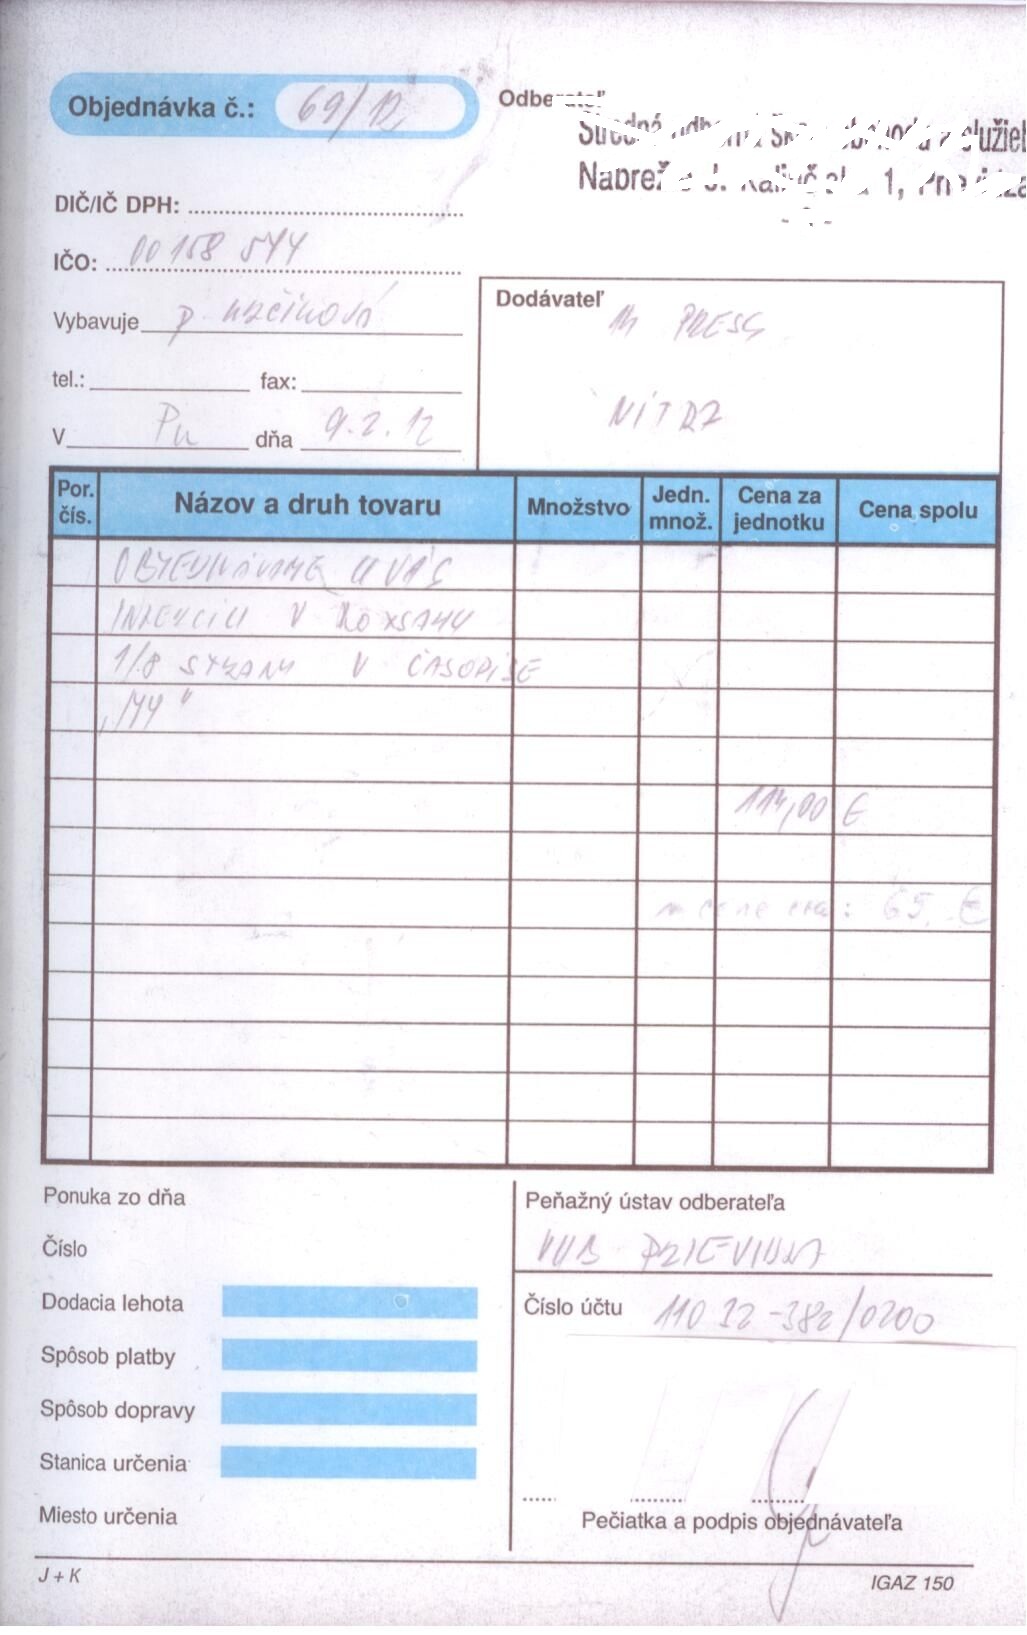 Objednávka č.: 69/12
Odberateľ
Stredná odborná obchodu a služieb
1,
DIČ/IČ DPH:
IČO: 00158 544
Vybavuje p.
Dodávateľ
PRESS
tel.: fax:
NITRA
V Pu dňa 9.2.12
Por. čís. Názov a druh tovaru Množstvo Jedn. množ. Cena za jednotku Cena spolu
OBJEDNÁVAME U VÁS
INZERCIU V ROZSAHU
1/8 STRANY V ČASOPISE
„MY"
114,00 €
65, €
Ponuka zo dňa
Peňažný ústav odberateľa
Číslo
VUB PRIEVIDZA
Dodacia lehota
Číslo účtu 110 32-382/0200
Spôsob platby
Spôsob dopravy
Stanica určenia
Miesto určenia
Pečiatka a podpis objednávateľa
J + K
IGAZ 150